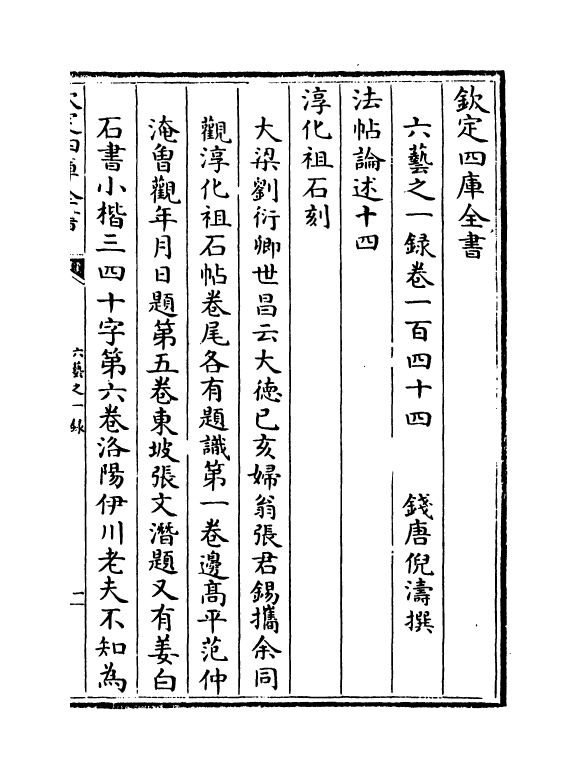 欽定四庫全書
六藝之一録卷一百四十四　　錢唐倪濤撰
法帖論述十四
淳化祖石刻
大梁劉衍卿世昌云大德已亥婦翁張君錫攜余同
觀淳化祖石帖卷尾各有題識第一卷邊髙平范仲
淹曽觀年月日題第五卷東坡張文潛題又有姜白
石書小楷三四十字第六卷洛陽伊川老夫不知為
欽定四庫全書
六藝之一録
二